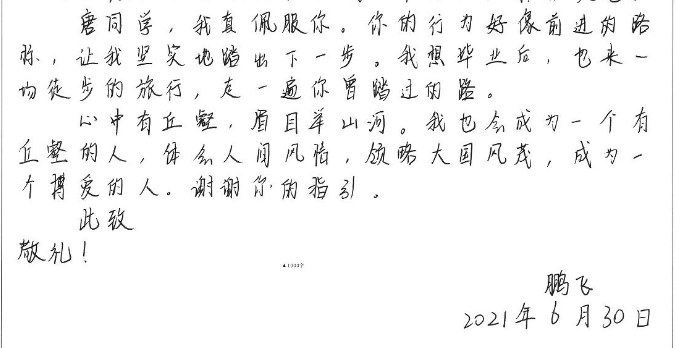 唐同学，我真佩服你。你的行为好像前进的路
标，让我坚实地踏出下一步。我想毕业后，也来一
场徒步的旅行，走一遍你曾踏过的路。
心中有丘壑，眉目举山河。我也会成为一个有
丘壑的人，体会人间风情，领略大国风茂，成为一
个博爱的人。谢谢你的指引。
此致
敬礼！
▲1000字
鹏飞
2021年6月30日